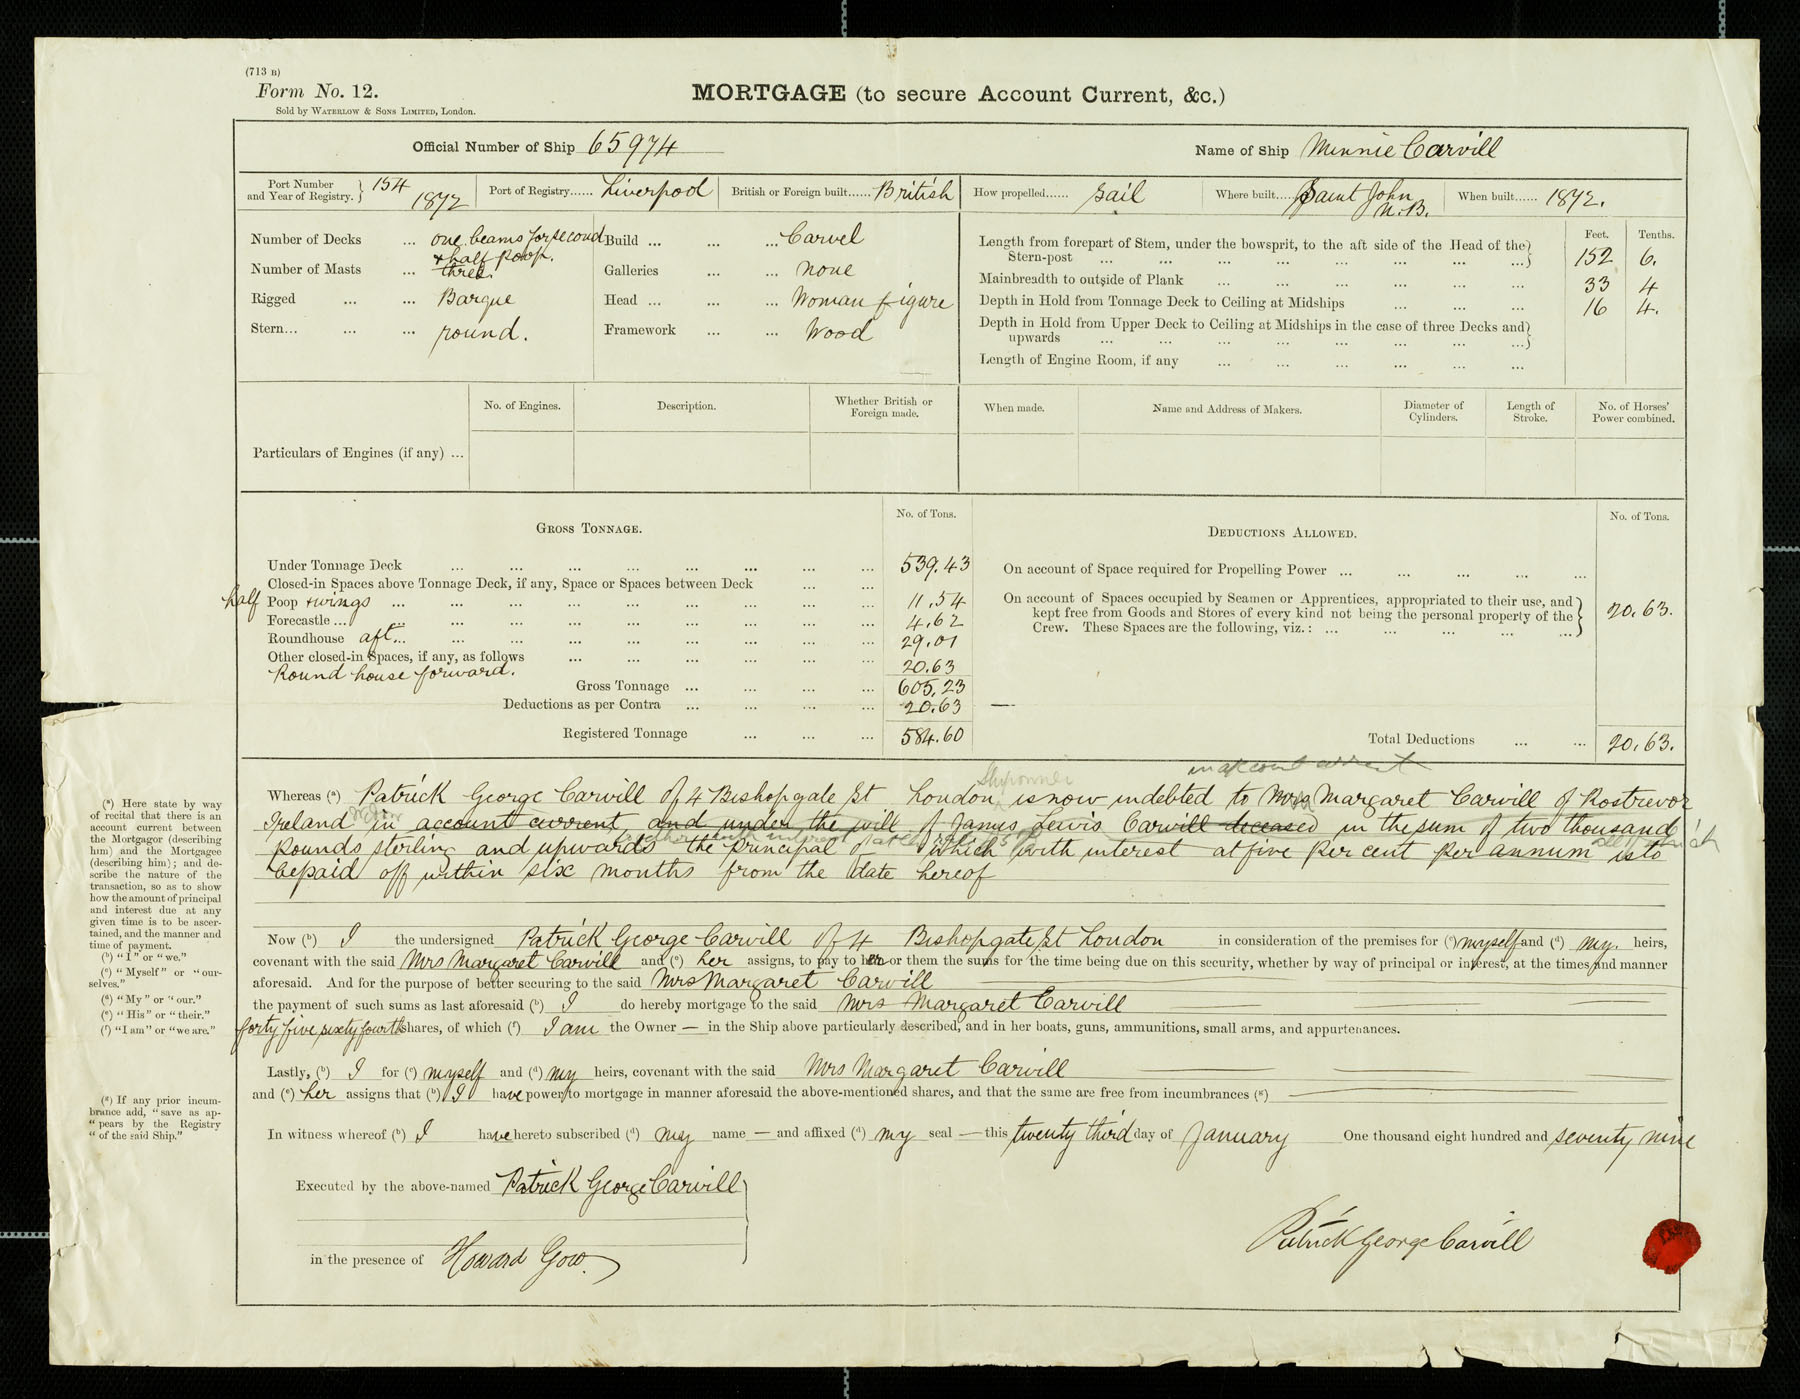 (713 B)
Form No. 12.
Sold by WATERLOW & SONS LIMITED, London.
MORTGAGE (to secure Account Current, &c.)
Official Number of Ship 65974
Name of Ship Minnie Carvill
Port Number and Year of Registry. } 154 1872
Port of Registry...... Liverpool
British or Foreign built...... British
How propelled...... Sail
Where built.... Saint John N.B.
When built...... 1872.
Number of Decks ... one beams for second & half Poop.
Number of Masts ... three.
Rigged ... ... Barque
Stern... ... ... round.
Build ... ... ... Carvel
Galleries ... ... none
Head ... ... ... Woman figure
Framework ... ... Wood
Feet. Tenths.
Length from forepart of Stem, under the bowsprit, to the aft side of the Head of the
Stern-post ... ... ... ... ... ... ... ...} 152 6.
Mainbreadth to outside of Plank ... ... ... ... ... ... 33 4
Depth in Hold from Tonnage Deck to Ceiling at Midships ... ... ... 16 4.
Depth in Hold from Upper Deck to Ceiling at Midships in the case of three Decks and
upwards ... ... ... ... ... ... ... ...}
Length of Engine Room, if any ... ... ... ... ... ...
Particulars of Engines (if any) ...
No. of Engines.
Description.
Whether British or Foreign made.
When made.
Name and Address of Makers.
Diameter of Cylinders.
Length of Stroke.
No. of Horses' Power combined.
GROSS TONNAGE.
No. of Tons.
Under Tonnage Deck ... ... ... ... ... ... ... ... 539.43
Closed-in Spaces above Tonnage Deck, if any, Space or Spaces between Deck ... ...
half Poop & wings ... ... ... ... ... ... ... ... ... 11.54
Forecastle ... ... ... ... ... ... ... ... ... 4.62
Roundhouse aft... ... ... ... ... ... ... ... ... 29.01
Other closed-in Spaces, if any, as follows ... ... ... ... ... ... 20.63
Round house forward.
Gross Tonnage ... ... ... ... 605.23
Deductions as per Contra ... ... ... ... 20.63
Registered Tonnage ... ... ... 584.60
DEDUCTIONS ALLOWED.
No. of Tons.
On account of Space required for Propelling Power ... ... ... ... ...
On account of Spaces occupied by Seamen or Apprentices, appropriated to their use, and
kept free from Goods and Stores of every kind not being the personal property of the
Crew. These Spaces are the following, viz.: ... ... ... ... ...} 20.63.
Total Deductions ... ... 20.63.
in account current
Shipowner
Whereas (a) Patrick George Carvill of 4 Bishopgate St London is now indebted to Mrs Margaret Carvill of Rostrevor
Ireland in account current and under the will of James Lewis Carvill deceased in the sum of two thousand
pounds sterling and upwards the principal of which with interest at five per cent per annum is to
be paid off within six months from the date hereof
Now (b) I the undersigned Patrick George Carvill of 4 Bishopgate St London in consideration of the premises for (c) myself and (d) my heirs,
covenant with the said Mrs Margaret Carvill and (e) her assigns, to pay to her or them the sums for the time being due on this security, whether by way of principal or interest, at the times and manner
aforesaid. And for the purpose of better securing to the said Mrs Margaret Carvill
the payment of such sums as last aforesaid (b) I do hereby mortgage to the said Mrs Margaret Carvill
forty five sixty fourth shares, of which (f) I am the Owner — in the Ship above particularly described, and in her boats, guns, ammunitions, small arms, and appurtenances.
Lastly, (b) I for (c) myself and (d) my heirs, covenant with the said Mrs Margaret Carvill
and (e) her assigns that (b) I have power to mortgage in manner aforesaid the above-mentioned shares, and that the same are free from incumbrances (g)
In witness whereof (b) I have hereto subscribed (d) my name — and affixed (d) my seal — this twenty third day of January One thousand eight hundred and seventy nine
Executed by the above-named Patrick George Carvill
in the presence of Howard Gow.
Patrick George Carvill
(a) Here state by way
of recital that there is an
account current between
the Mortgagor (describing
him) and the Mortgagee
(describing him); and de-
scribe the nature of the
transaction, so as to show
how the amount of principal
and interest due at any
given time is to be ascer-
tained, and the manner and
time of payment.
(b) "I" or "we."
(c) "Myself" or "our-
selves."
(d) "My" or "our."
(e) "His" or "their."
(f) "I am" or "we are."
(g) If any prior incum-
brance add, "save as ap-
"pears by the Registry
"of the said Ship."